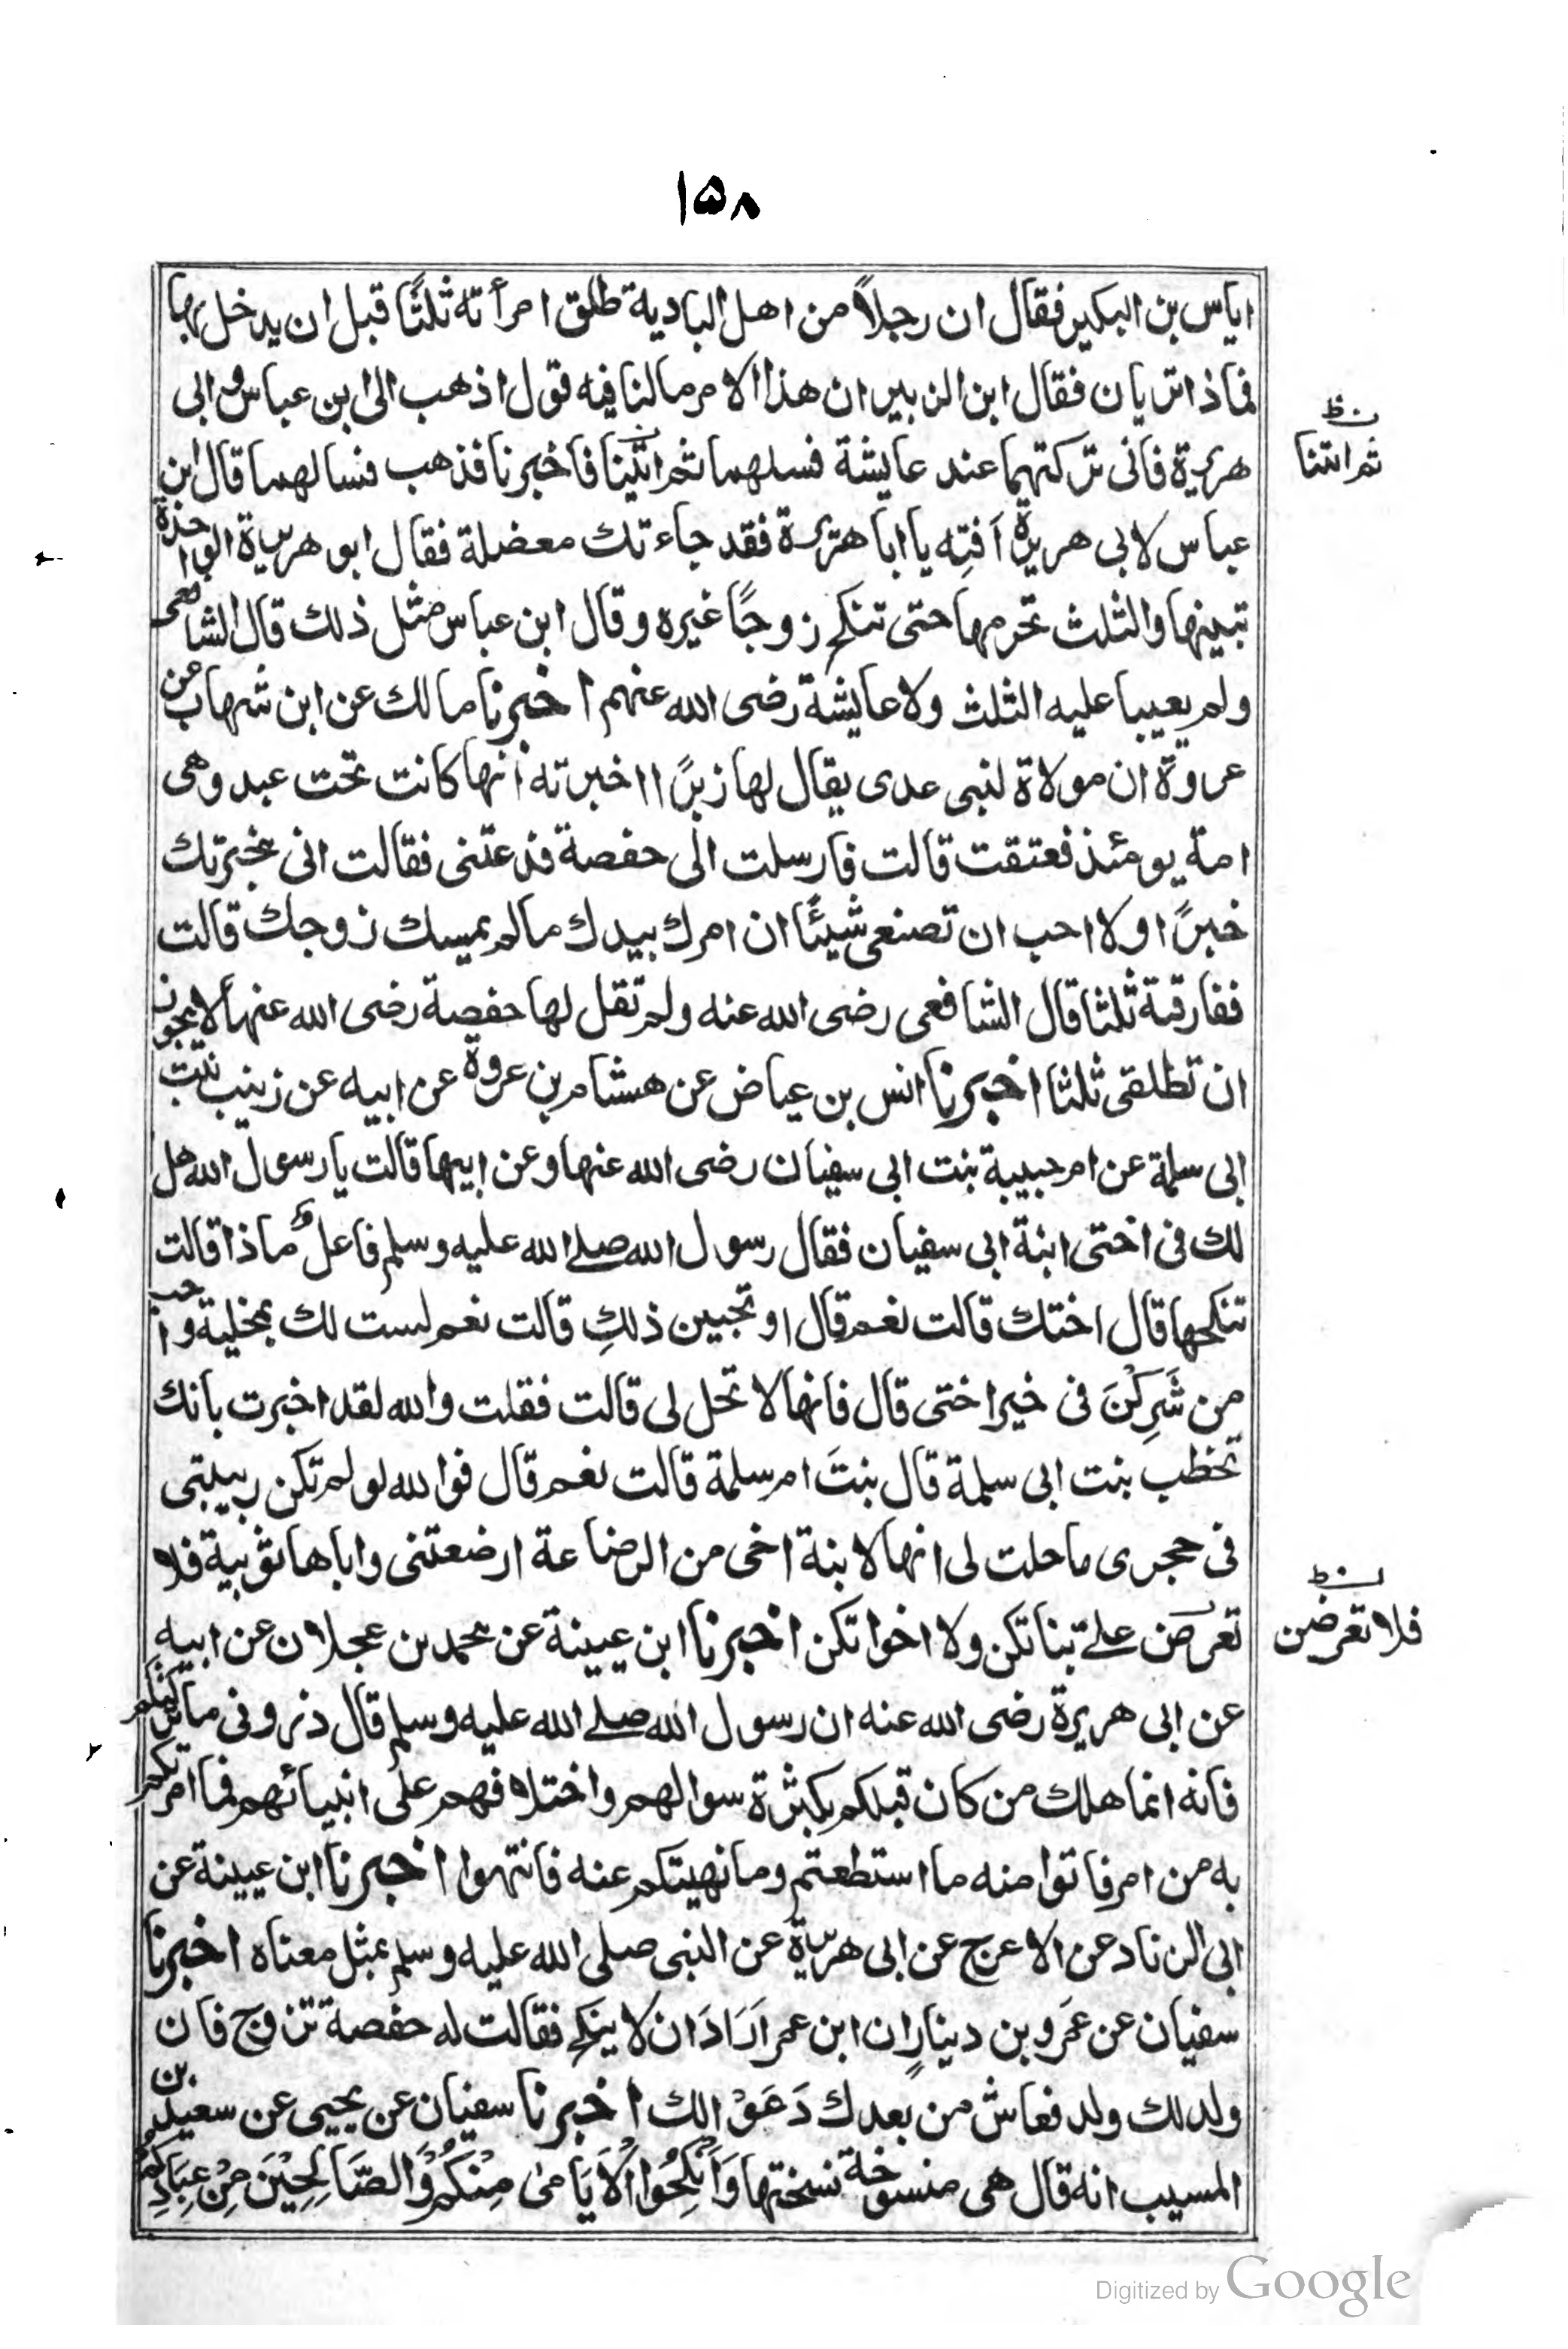 ۱۵۸
اياس بن البكير فقال ان رجلاً من اهل البادية طلق امرأته ثلثًا قبل ان يدخل بها
فماذا تريان فقال ابن الزبير ان هذا الامر مالنا فيه قول اذهب الى ابن عباس و ابى
هريرة فانى تركتهما عند عايشة فسلهما ثم ائتينا فاخبرنا فذهب فسالهما قال ابن
ثم ائتنا
عباس لابى هريرة اَفتِه يا ابا هريرة فقد جاءتك معضلة فقال ابو هريرة الواحدة
تبينها والثلث تحرمها حتى تنكح زوجًا غيره وقال ابن عباس مثل ذلك قال الشافعى
ولم يعيبا عليه الثلث ولا عايشة رضى الله عنهم اخبرنا مالك عن ابن شهاب عن
عروة ان مولاة لبنى عدى يقال لها زبرًا اخبرته انها كانت تحت عبد وهى
امة يومئذ فعتقت قالت فارسلت الى حفصة فدعتنى فقالت انى مخبرتك
خبرًا ولا احب ان تصنعى شيئًا ان امرك بيدك مالم يمسك زوجك قالت
ففارقته ثلثا قال الشافعى رضى الله عنه ولم تقل لها حفصة رضى الله عنها لا يجوز
ان تطلقى ثلثا اخبرنا انس بن عياض عن هشام بن عروة عن ابيه عن زينب بنت
ابى سلمة عن ام حبيبة بنت ابى سفيان رضى الله عنها وعن ابيها قالت يا رسول الله هل
لك فى اختى ابنة ابى سفيان فقال رسول الله صلے الله عليه وسلم فاعل ماذا قالت
تنكحها قال اختك قالت نعم قال او تحبين ذلكِ قالت نعم لست لك بمخلية واحب
من شَرِكَنى فى خير اختى قال فانها لا تحل لى قالت فقلت والله لقد اخبرت بانك
تخطب بنت ابى سلمة قال بنتَ ام سلمة قالت نعم قال فوالله لو لم تكن ربيبتى
فى حجرى ما حلت لى انها لابنة اخى من الرضاعة ارضعتنى واباها ثويبة فلا
تعرضن علے بناتكن ولا اخواتكن اخبرنا ابن عيينة عن محمد بن عجلان عن ابيه
فلا تعرضن
عن ابى هريرة رضى الله عنه ان رسول الله صلے الله عليه وسلم قال ذرونى ما تركتكم
فانه انما هلك من كان قبلكم بكثرة سوالهم واختلافهم على انبيائهم فما امرتكم
به من امر فاتوا منه ما استطعتم وما نهيتكم عنه فانتهوا اخبرنا ابن عيينة عن
ابى الزناد عن الاعرج عن ابى هريرة عن النبى صلى الله عليه وسلم بمثل معناه اخبرنا
سفيان عن عَمَرو بن دينارٍ ان ابن عمر اَرَادَ ان لا ينكح فقالت له حفصة تزوج فان
ولد لك ولد فعاش من بعدك دَعَوْا لك اخبرنا سفيان عن يحيى عن سعيد بن
المسيب انه قال هى منسوخة نسختها وَاَنْكِحُوا اْلَايَامٰى مِنْكُمْ وَالصَّالِحِيْنَ مِنْ عِبَادِكُمْ
Digitized by Google